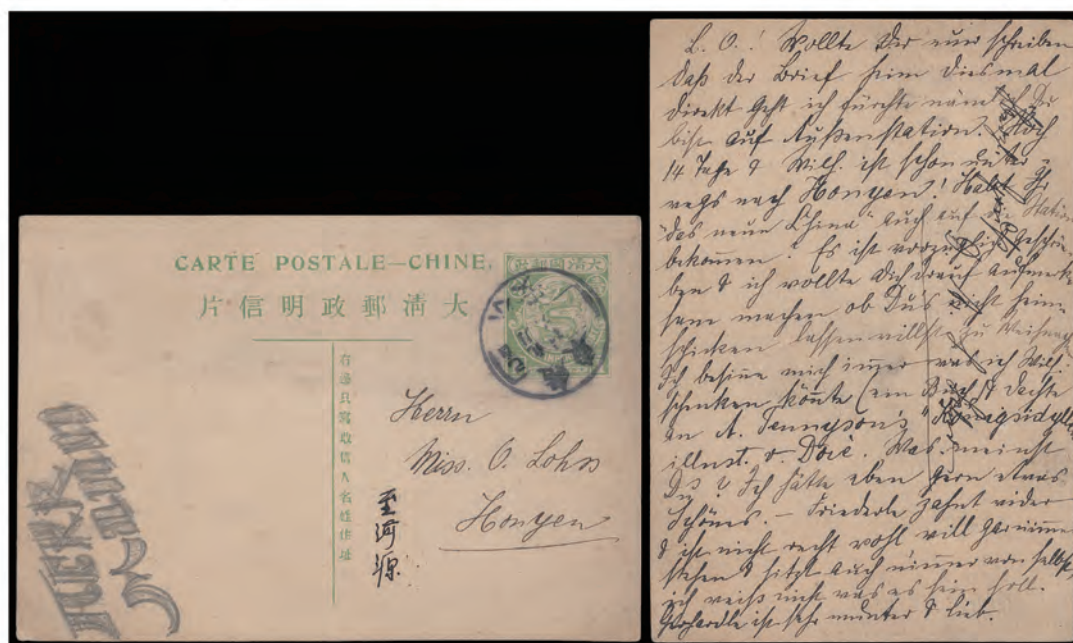 CARTE POSTALE—CHINE.
大清國郵政
大清郵政明信片
右邊只寫收信人名姓住址
Herrn
Miss. O. Lohss
Honyen
至河源
L. O.! Wollte Dir nur schreiben
daß der Brief heim diesmal
direkt geht ich fürchte nämlich Du
bist auf Außenstation. Noch
14 Tage & Wilh. ist schon unter-
wegs nach Honyen! Habt Ihr
"das neue China" auch auf die Station
bekommen? Es ist vorzüglich geschrie-
ben & ich wollte Dich drauf aufmerk-
sam machen ob Du's nicht heim
schicken lassen willst zu Weihnach
Ich besinne mich immer was ich Wilh.
schenken könnte (ein Buch) dachte
an A. Tennyson's "Königsidylle
illust. v. Doré. Was meinst
Du? Ich hätte eben gern etwas
Schönes. — Friederle zahnt wider
& ist nicht recht wohl will gar nimme
stehen & sitzt auch nimmer von selbst,
ich weiß nicht was es sein soll.
Gerhardle ist sehr munter & lieb.